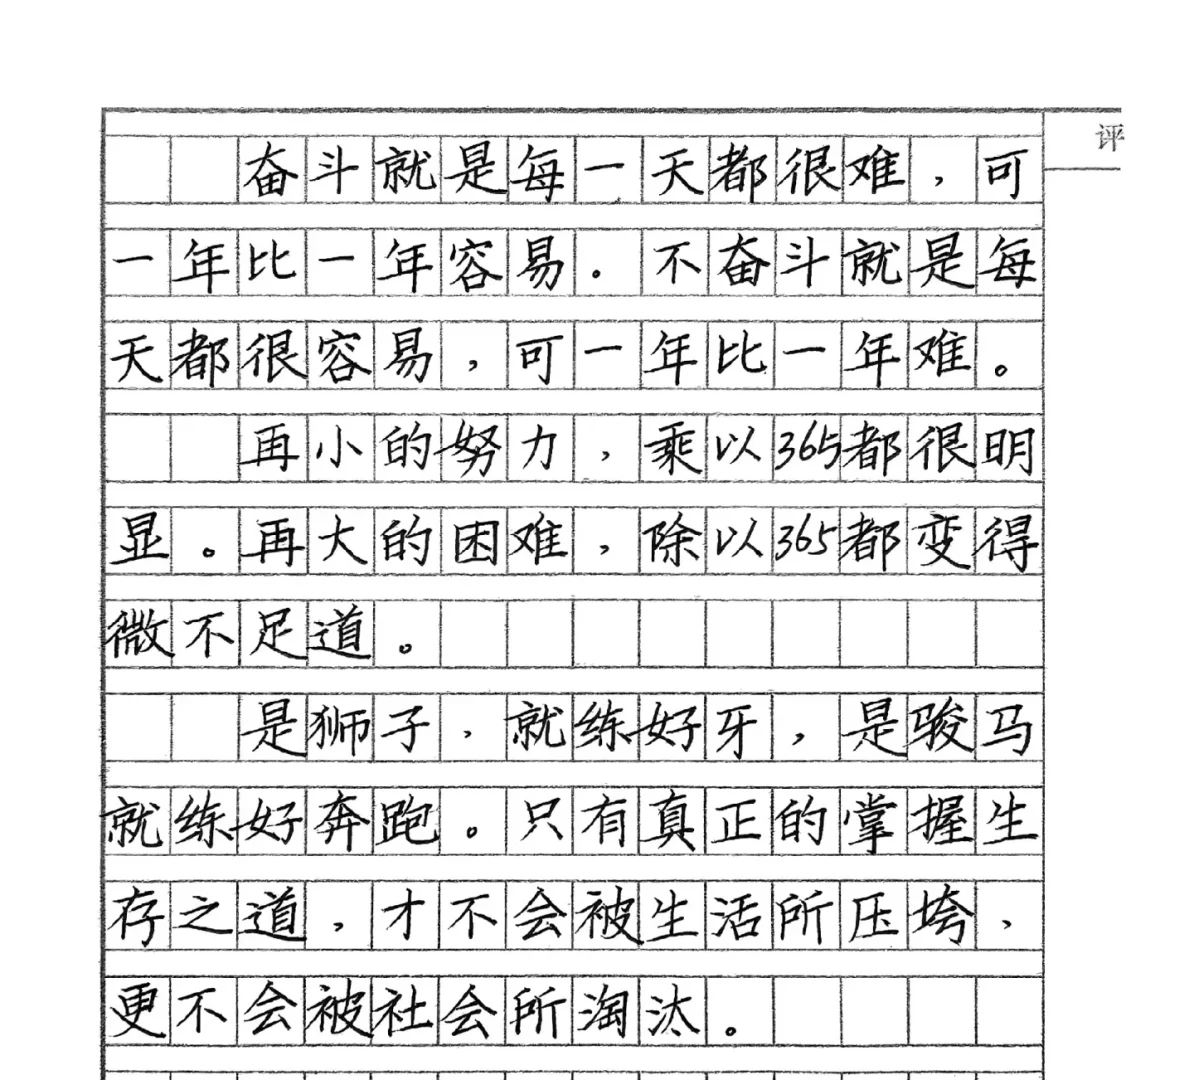 评
奋斗就是每一天都很难，可
一年比一年容易．不奋斗就是每
天都很容易，可一年比一年难。
再小的努力，乘以365都很明
显。再大的困难，除以365都变得
微不足道。
是狮子，就练好牙，是骏马
就练好奔跑。只有真正的掌握生
存之道，才不会被生活所压垮，
更不会被社会所淘汰。